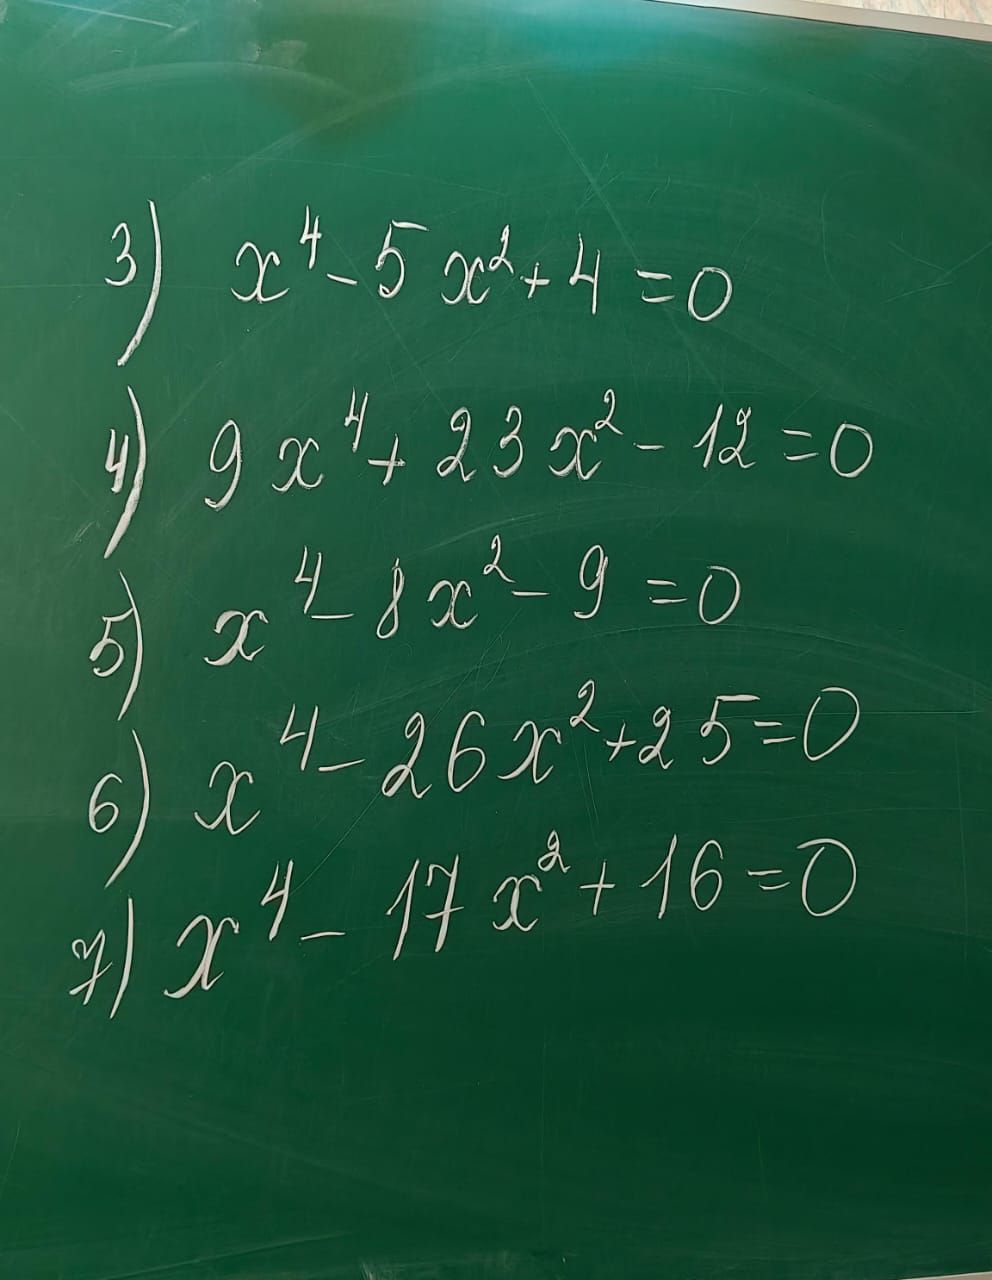 3) x⁴ - 5x² + 4 = 0
4) 9x⁴ + 23x² - 12 = 0
5) x⁴ - 8x² - 9 = 0
6) x⁴ - 26x² + 25 = 0
7) x⁴ - 17x² + 16 = 0